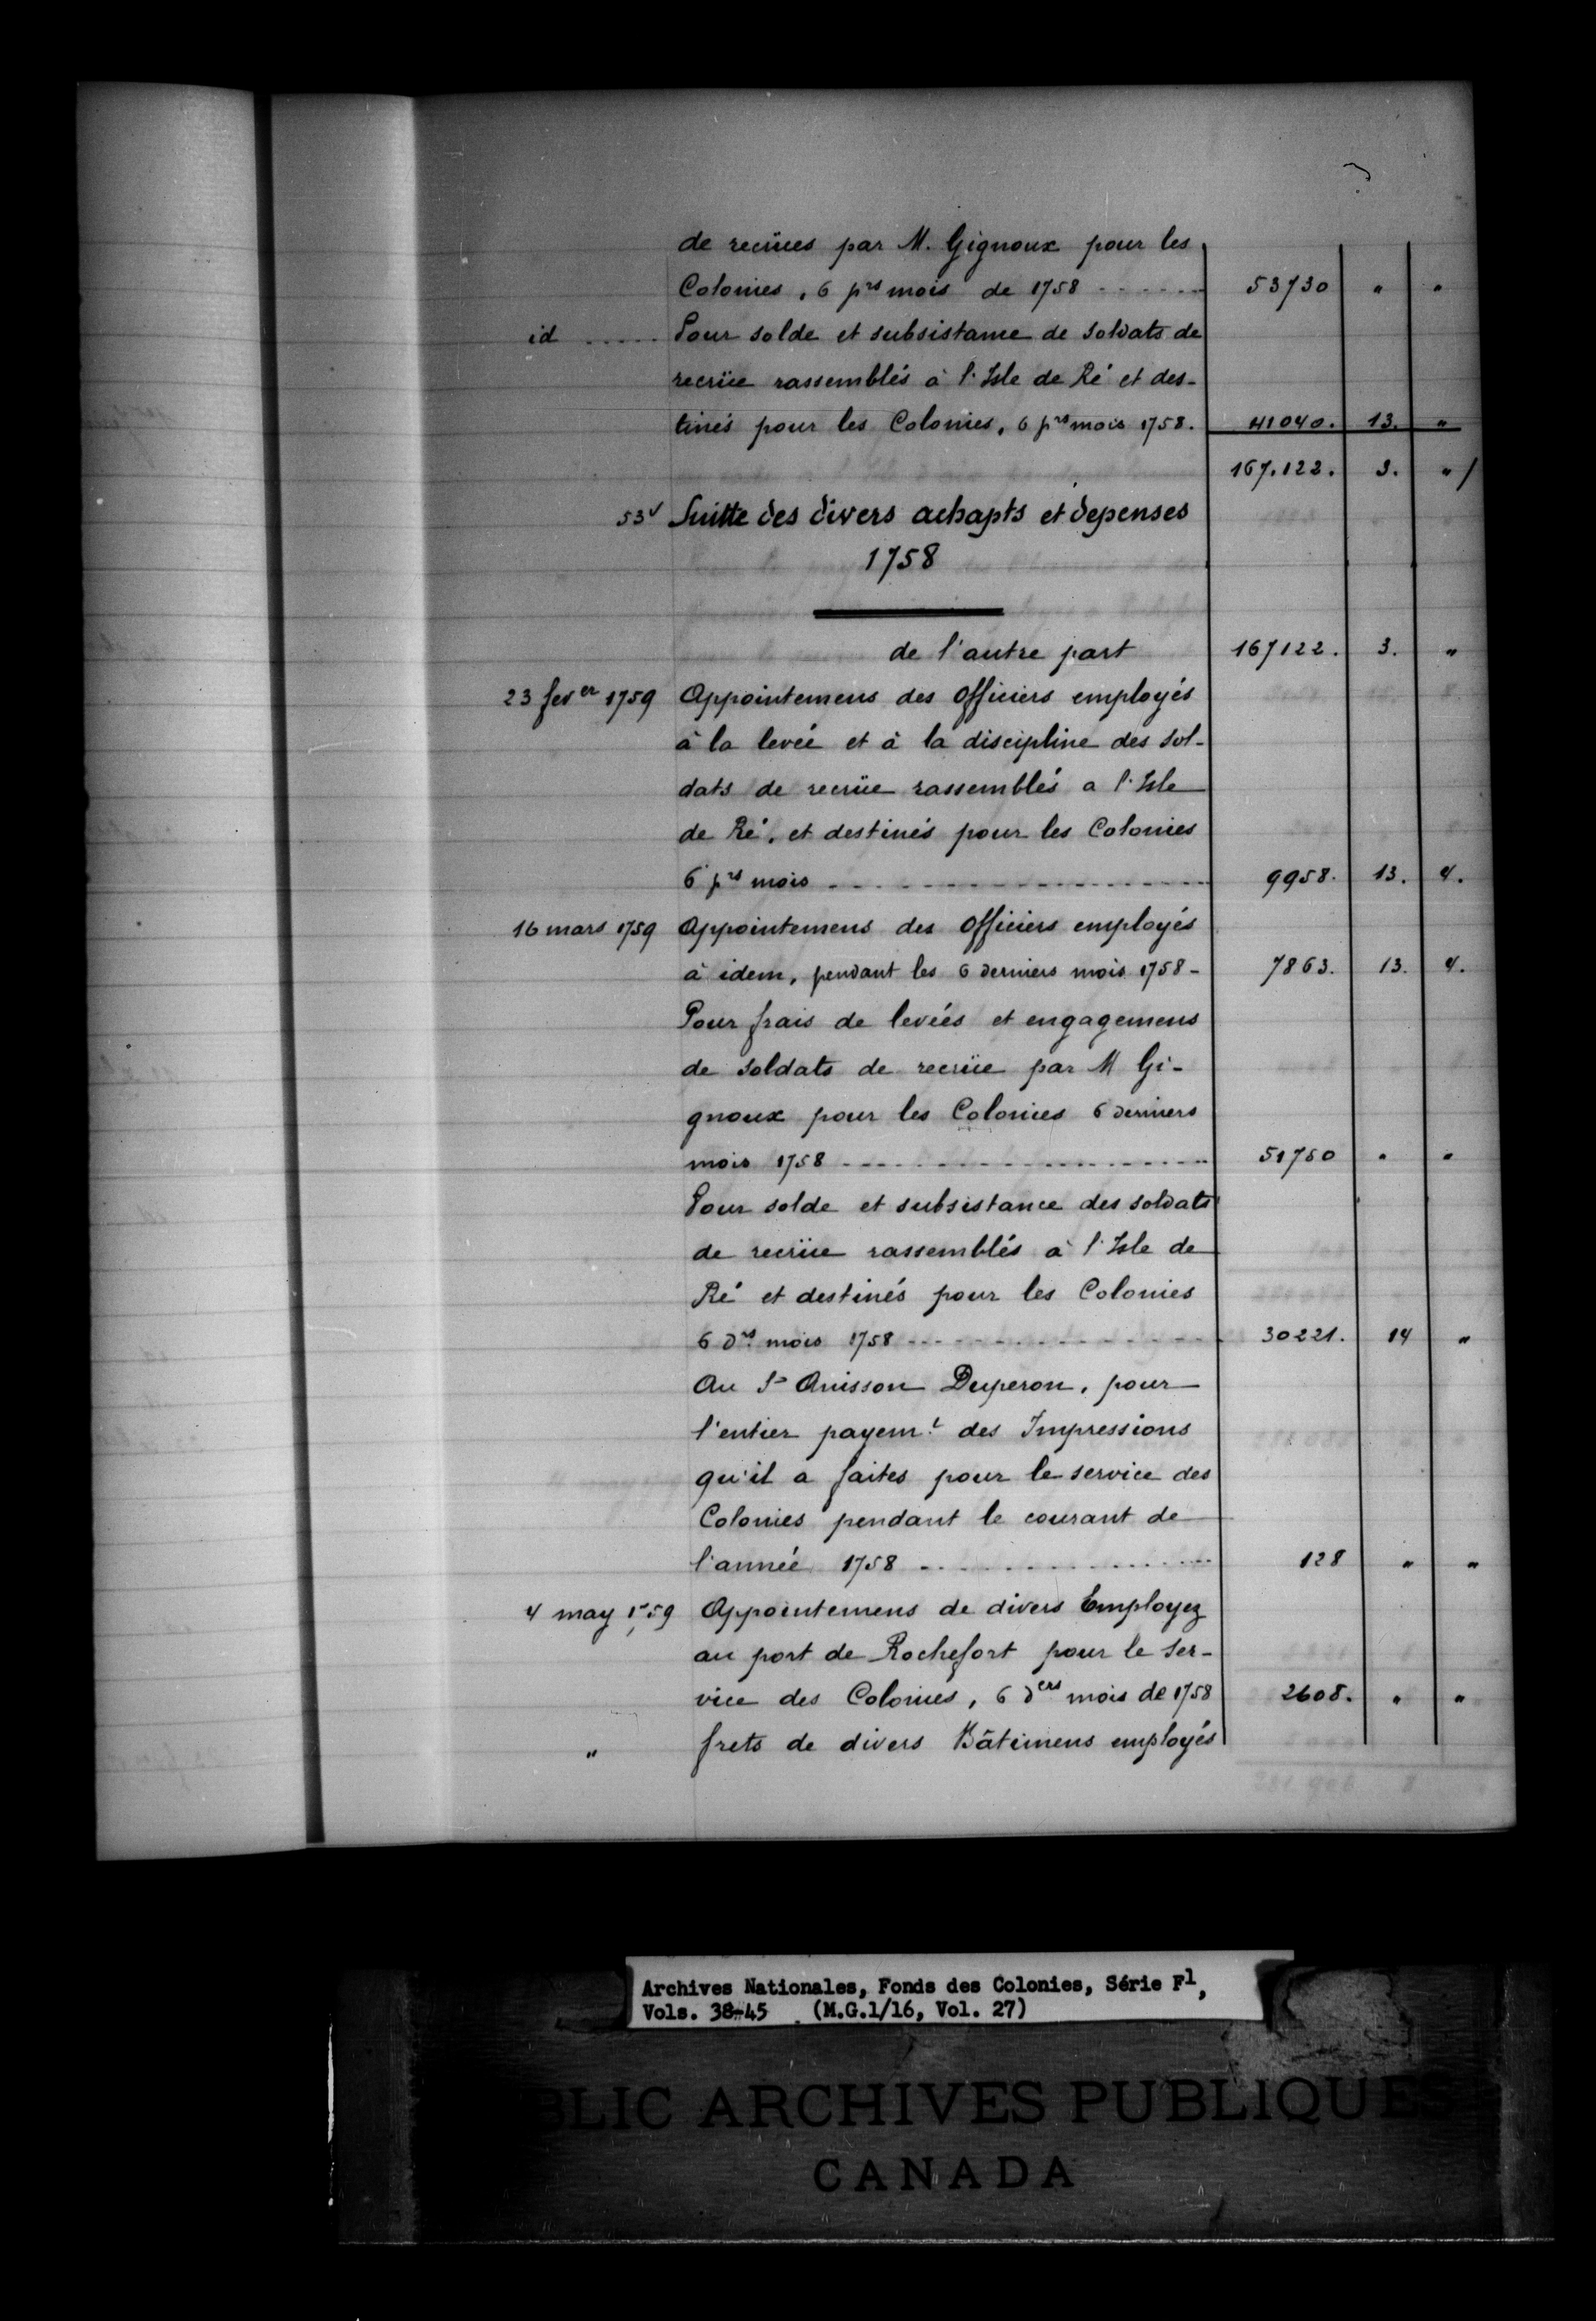 de recrües par M. Gignoux pour les
Colonies, 6 prs mois de 1758 ------ 53730 " "
id ..... Pour solde et subsistance de soldats de
recrüe rassemblés à l'Isle de Ré et des-
tinés pour les Colonies, 6 prs mois 1758. 41040. 13. "
167.122. 3. " /
53v Suitte des divers achapts et depenses
1758
de l'autre part 167122. 3. "
23 fever 1759 Appointemens des Officiers employés
à la levée et à la discipline des sol-
dats de recrüe rassemblés a l'Isle
de Ré, et destinés pour les Colonies
6 prs mois ------ 9958. 13. 4.
16 mars 1759 Appointemens des Officiers employés
à idem, pendant les 6 derniers mois 1758- 7863. 13. 4.
Pour frais de levées et engagemens
de soldats de recrüe par M Gi-
gnoux pour les Colonies 6 derniers
mois 1758 ------ 51750 " "
Pour solde et subsistance des soldats
de recrüe rassemblés à l'Isle de
Ré et destinés pour les Colonies
6 drs mois 1758 ------ 30221. 14 "
Au Sr Anisson Duperon, pour
l'entier payemt des Impressions
qu'il a faites pour le service des
Colonies pendant le courant de
l'année 1758 ------ 128 " "
4 may 1759 Appointemens de divers Employez
au port de Rochefort pour le ser-
vice des Colonies, 6 ders mois de 1758 2608. " "
" frets de divers Bâtimens employés
Archives Nationales, Fonds des Colonies, Série F1,
Vols. 38-45 (M.G.1/16, Vol. 27)
BLIC ARCHIVES PUBLIQUES
CANADA